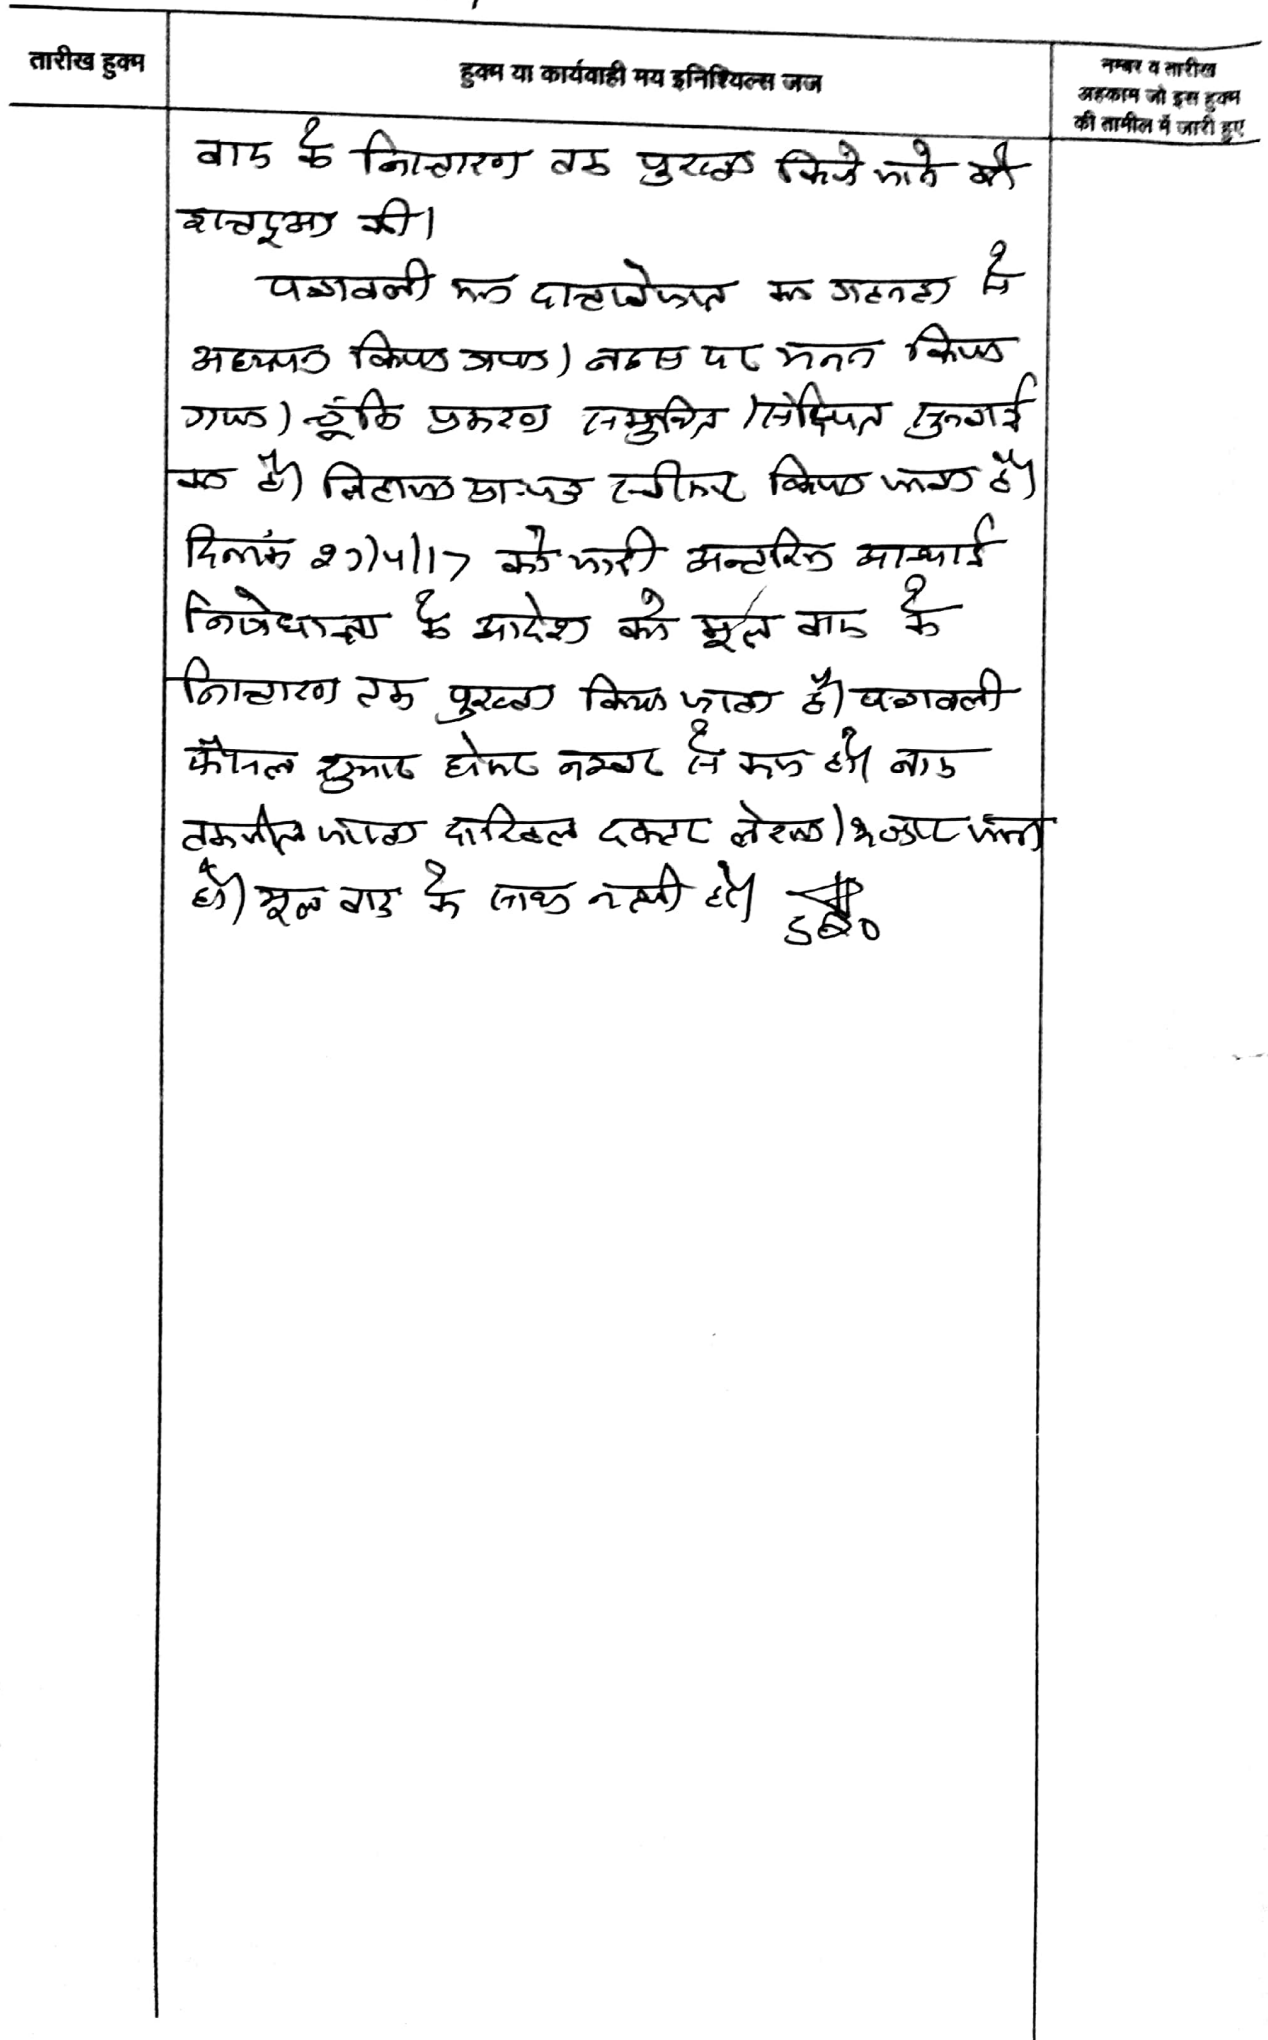 तारीख हुक्म
हुक्म या कार्यवाही मय इनिशियल्स जज
नम्बर व तारीख
अहकाम जो इस हुक्म
की तामील में जारी हुए
वाद के निस्तारण तक पुख्ता किये जाने की
इस्तदुआ की।
पत्रावली का दस्तावेजात का गहनता से
अध्ययन किया गया। बहस पर मनन किया
गया। चूँकि प्रकरण समुचित / संक्षिप्त सुनवाई
का है। लिहाजा प्रा-पत्र स्वीकार किया जाता है।
दिनांक 27/4/17 को जारी अन्तरिम अस्थाई
निषेधाज्ञा के आदेश को मूल वाद के
निस्तारण तक पुख्ता किया जाता है। पत्रावली
फैसल शुमार होकर नम्बर से कम हो। बाद
तकमील दाखिल दफ्तर
हो। मूल वाद के साथ नत्थी हो।
SDO